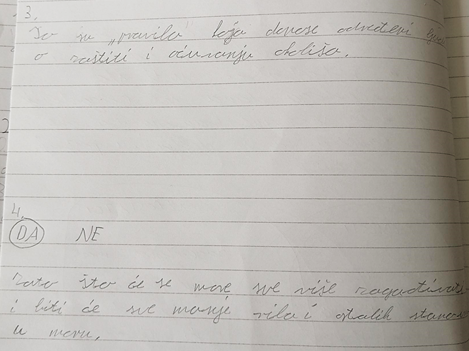 3.
To su „pravila koja donose određeni
o zaštiti i očuvanju okoliša.
4.
DA NE
Zato što će se more sve više zagađivati
i biti će sve manje riba i ostalih
u moru.